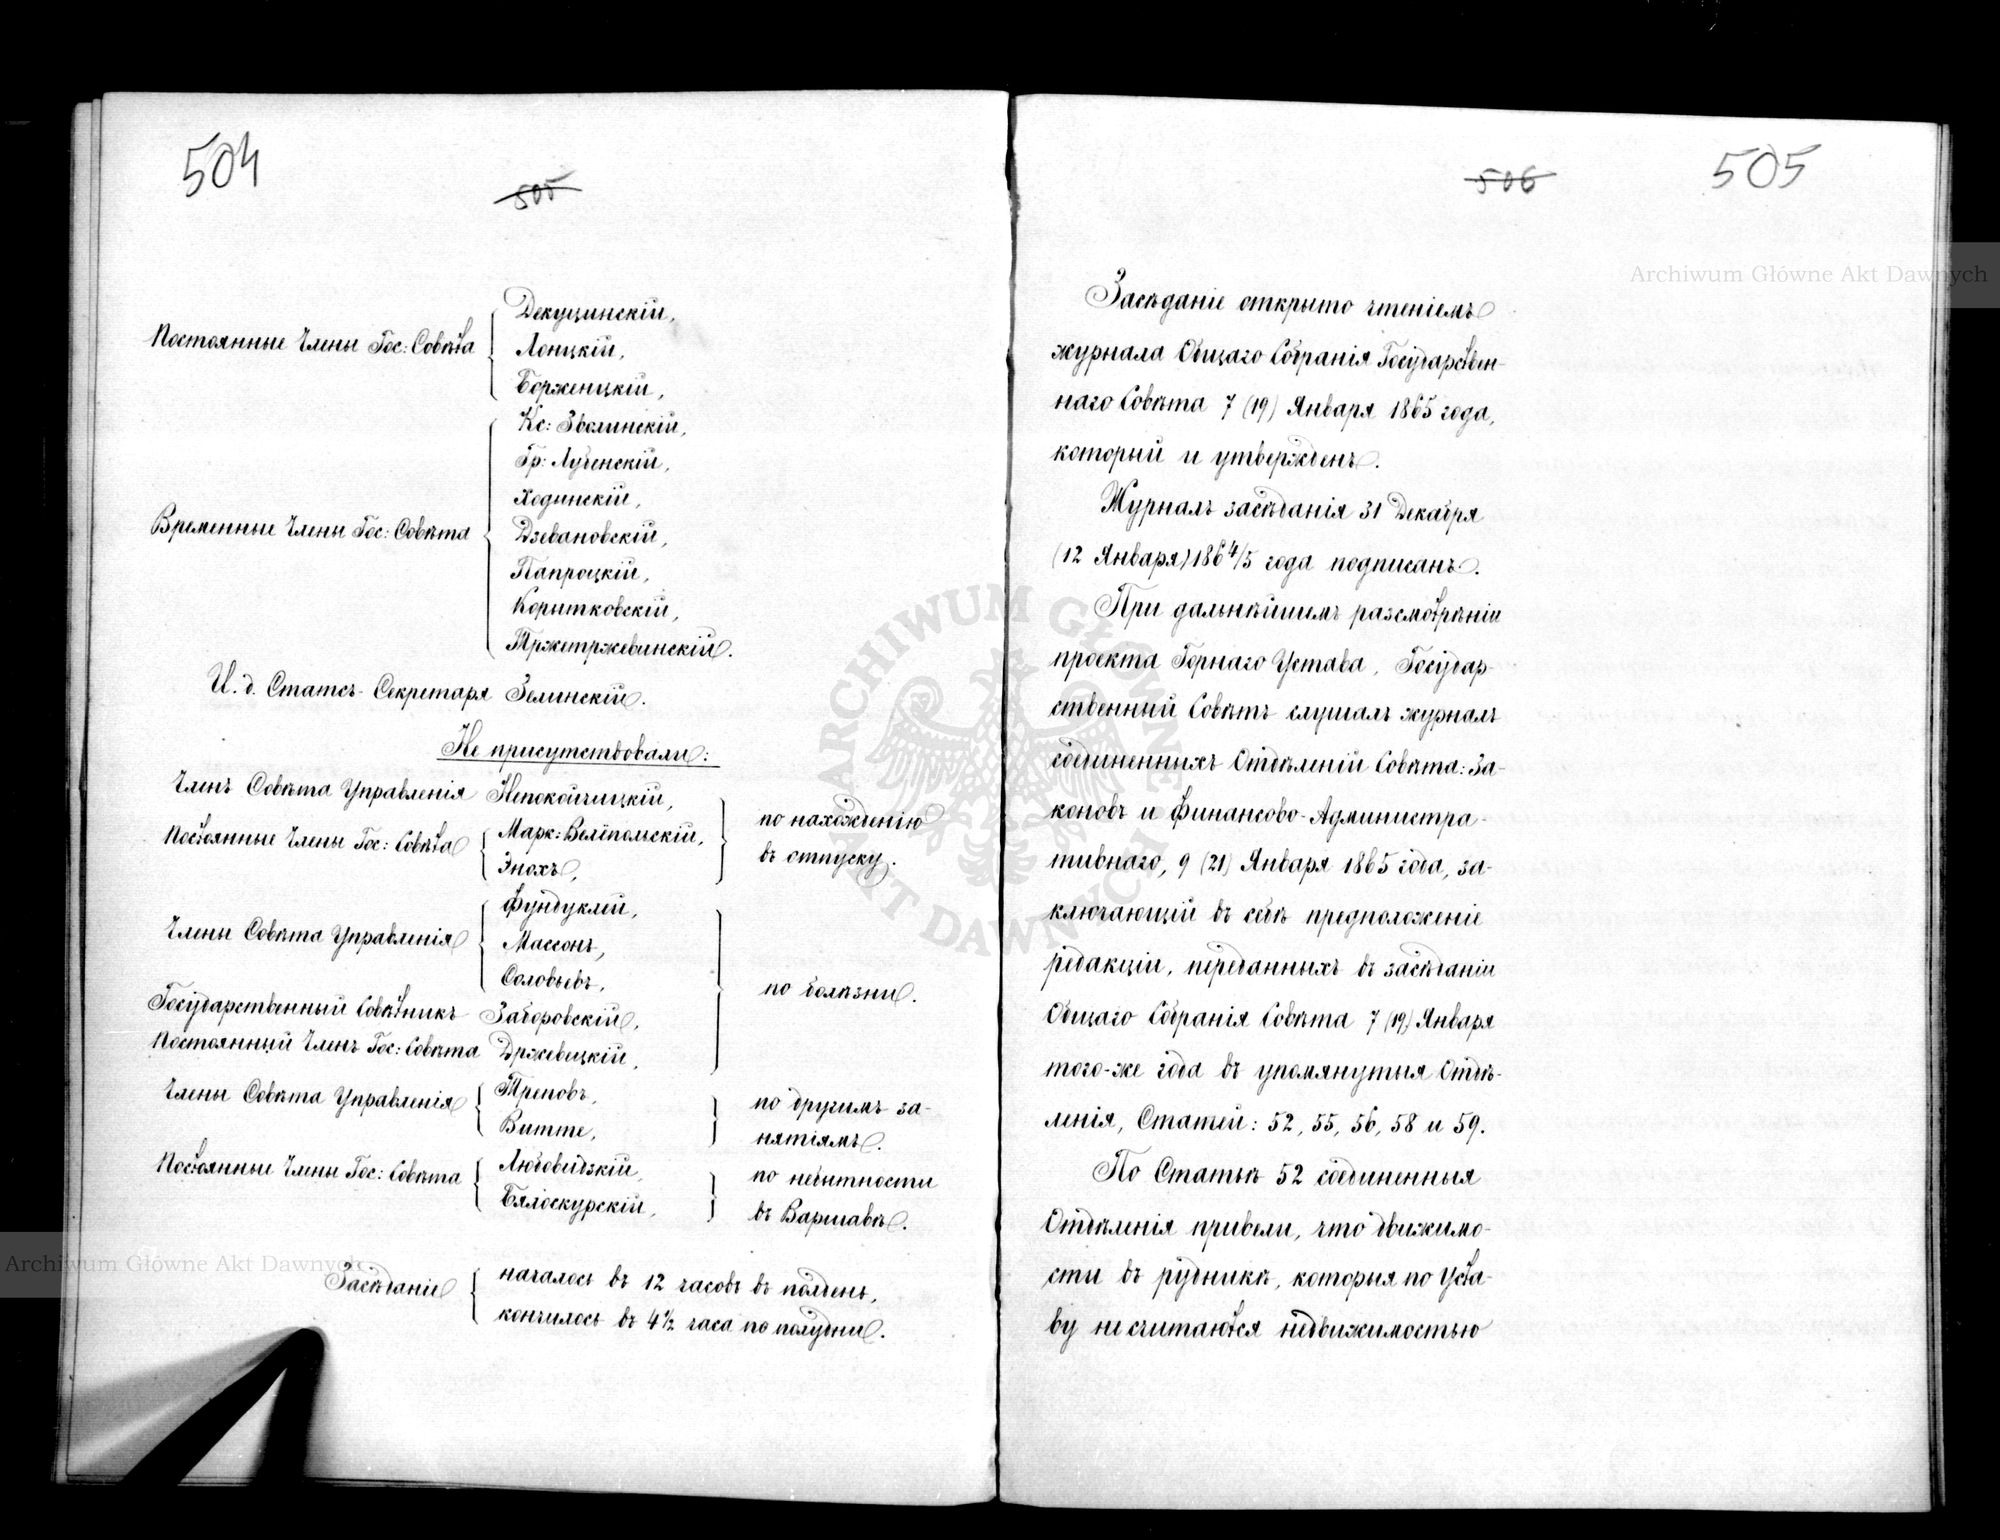 504
505
Декуцинскій,
Постоянные Члены Гос: Совѣта
Лонцкій,
Борженцкій,
Кс: Зволинскій,
Гр: Лубенскій,
Ходинскій,
Временные Члены Гос: Совѣта
Дзевановскій,
Папроцкій,
Коритковскій,
Тржетржевинскій.
И. д. Статсъ-Секретаря Зелинскій.
Не присутствовали:
Членъ Совѣта Управленія Непокойчицкій,
Постоянные Члены Гос: Совѣта
Марк: Велёпольскій,
Энохъ,
по нахожденію
въ отпуску.
Члены Совѣта Управленія
Фундуклей,
Массонъ,
Соловьевъ,
Государственный Совѣтникъ Заборовскій,
Постоянный Членъ Гос: Совѣта Држевецкій,
по болѣзни.
Члены Совѣта Управленія
Треповъ,
Витте,
по другимъ за-
нятіямъ.
Постоянные Члены Гос: Совѣта
Любовидзкій,
Бялоскурскій,
по небытности
въ Варшавѣ.
Засѣданіе
началось въ 12 часовъ въ полдень,
кончилось въ 4½ часа по полудни.
506
505
Засѣданіе открыто чтеніемъ
журнала Общаго Собранія Государствен-
наго Совѣта 7 (19) Января 1865 года,
который и утвержденъ.
Журналъ засѣданія 31 Декабря
(12 Января) 1864/5 года подписанъ.
При дальнѣйшемъ разсмотрѣніи
проекта Горнаго Устава, Государ-
ственный Совѣтъ слушалъ журналъ
соединенныхъ Отдѣленій Совѣта: За-
коновъ и Финансово-Администра-
тивнаго, 9 (21) Января 1865 года, за-
ключающій въ себѣ предположеніе
редакціи, переданныхъ въ засѣданіи
Общаго Собранія Совѣта 7 (19) Января
того-же года въ упомянутыя Отдѣ-
ленія, Статей: 52, 55, 56, 58 и 59.
По Статьѣ 52 соединенныя
Отдѣленія привели, что движимо-
сти въ рудникѣ, которыя по Уста-
ву не считаются недвижимостью
Archiwum Główne Akt Dawnych
Archiwum Główne Akt Dawnych
ARCHIWUM GŁÓWNE AKT DAWNYCH